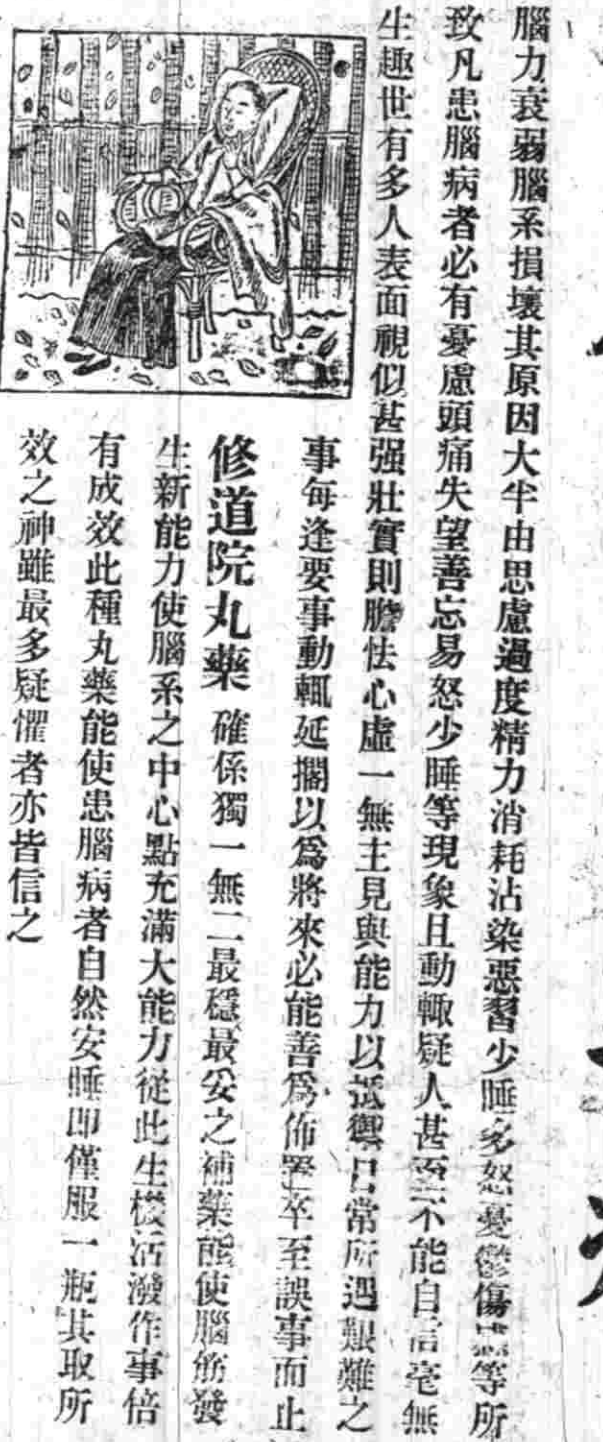 腦力衰弱腦系損壞其原因大半由思慮過度精力消耗沾染惡習少睡多怒憂鬱傷等所
致凡患腦病者必有憂慮頭痛失望善忘易怒少睡等現象且動輒疑人甚至不能自信毫無
生趣世有多人表面視似甚强壯實則膽怯心虛一無主見與能力以抵禦日常所遇艱難之
事每逢要事動輒延擱以爲將來必能善爲佈置卒至誤事而止
修道院丸藥 確係獨一無二最穩最妥之補藥能使腦筋發
生新能力使腦系之中心點充滿大能力從此生機活潑作事倍
有成效此種丸藥能使患腦病者自然安睡即僅服一瓶其取所
效之神雖最多疑懼者亦皆信之